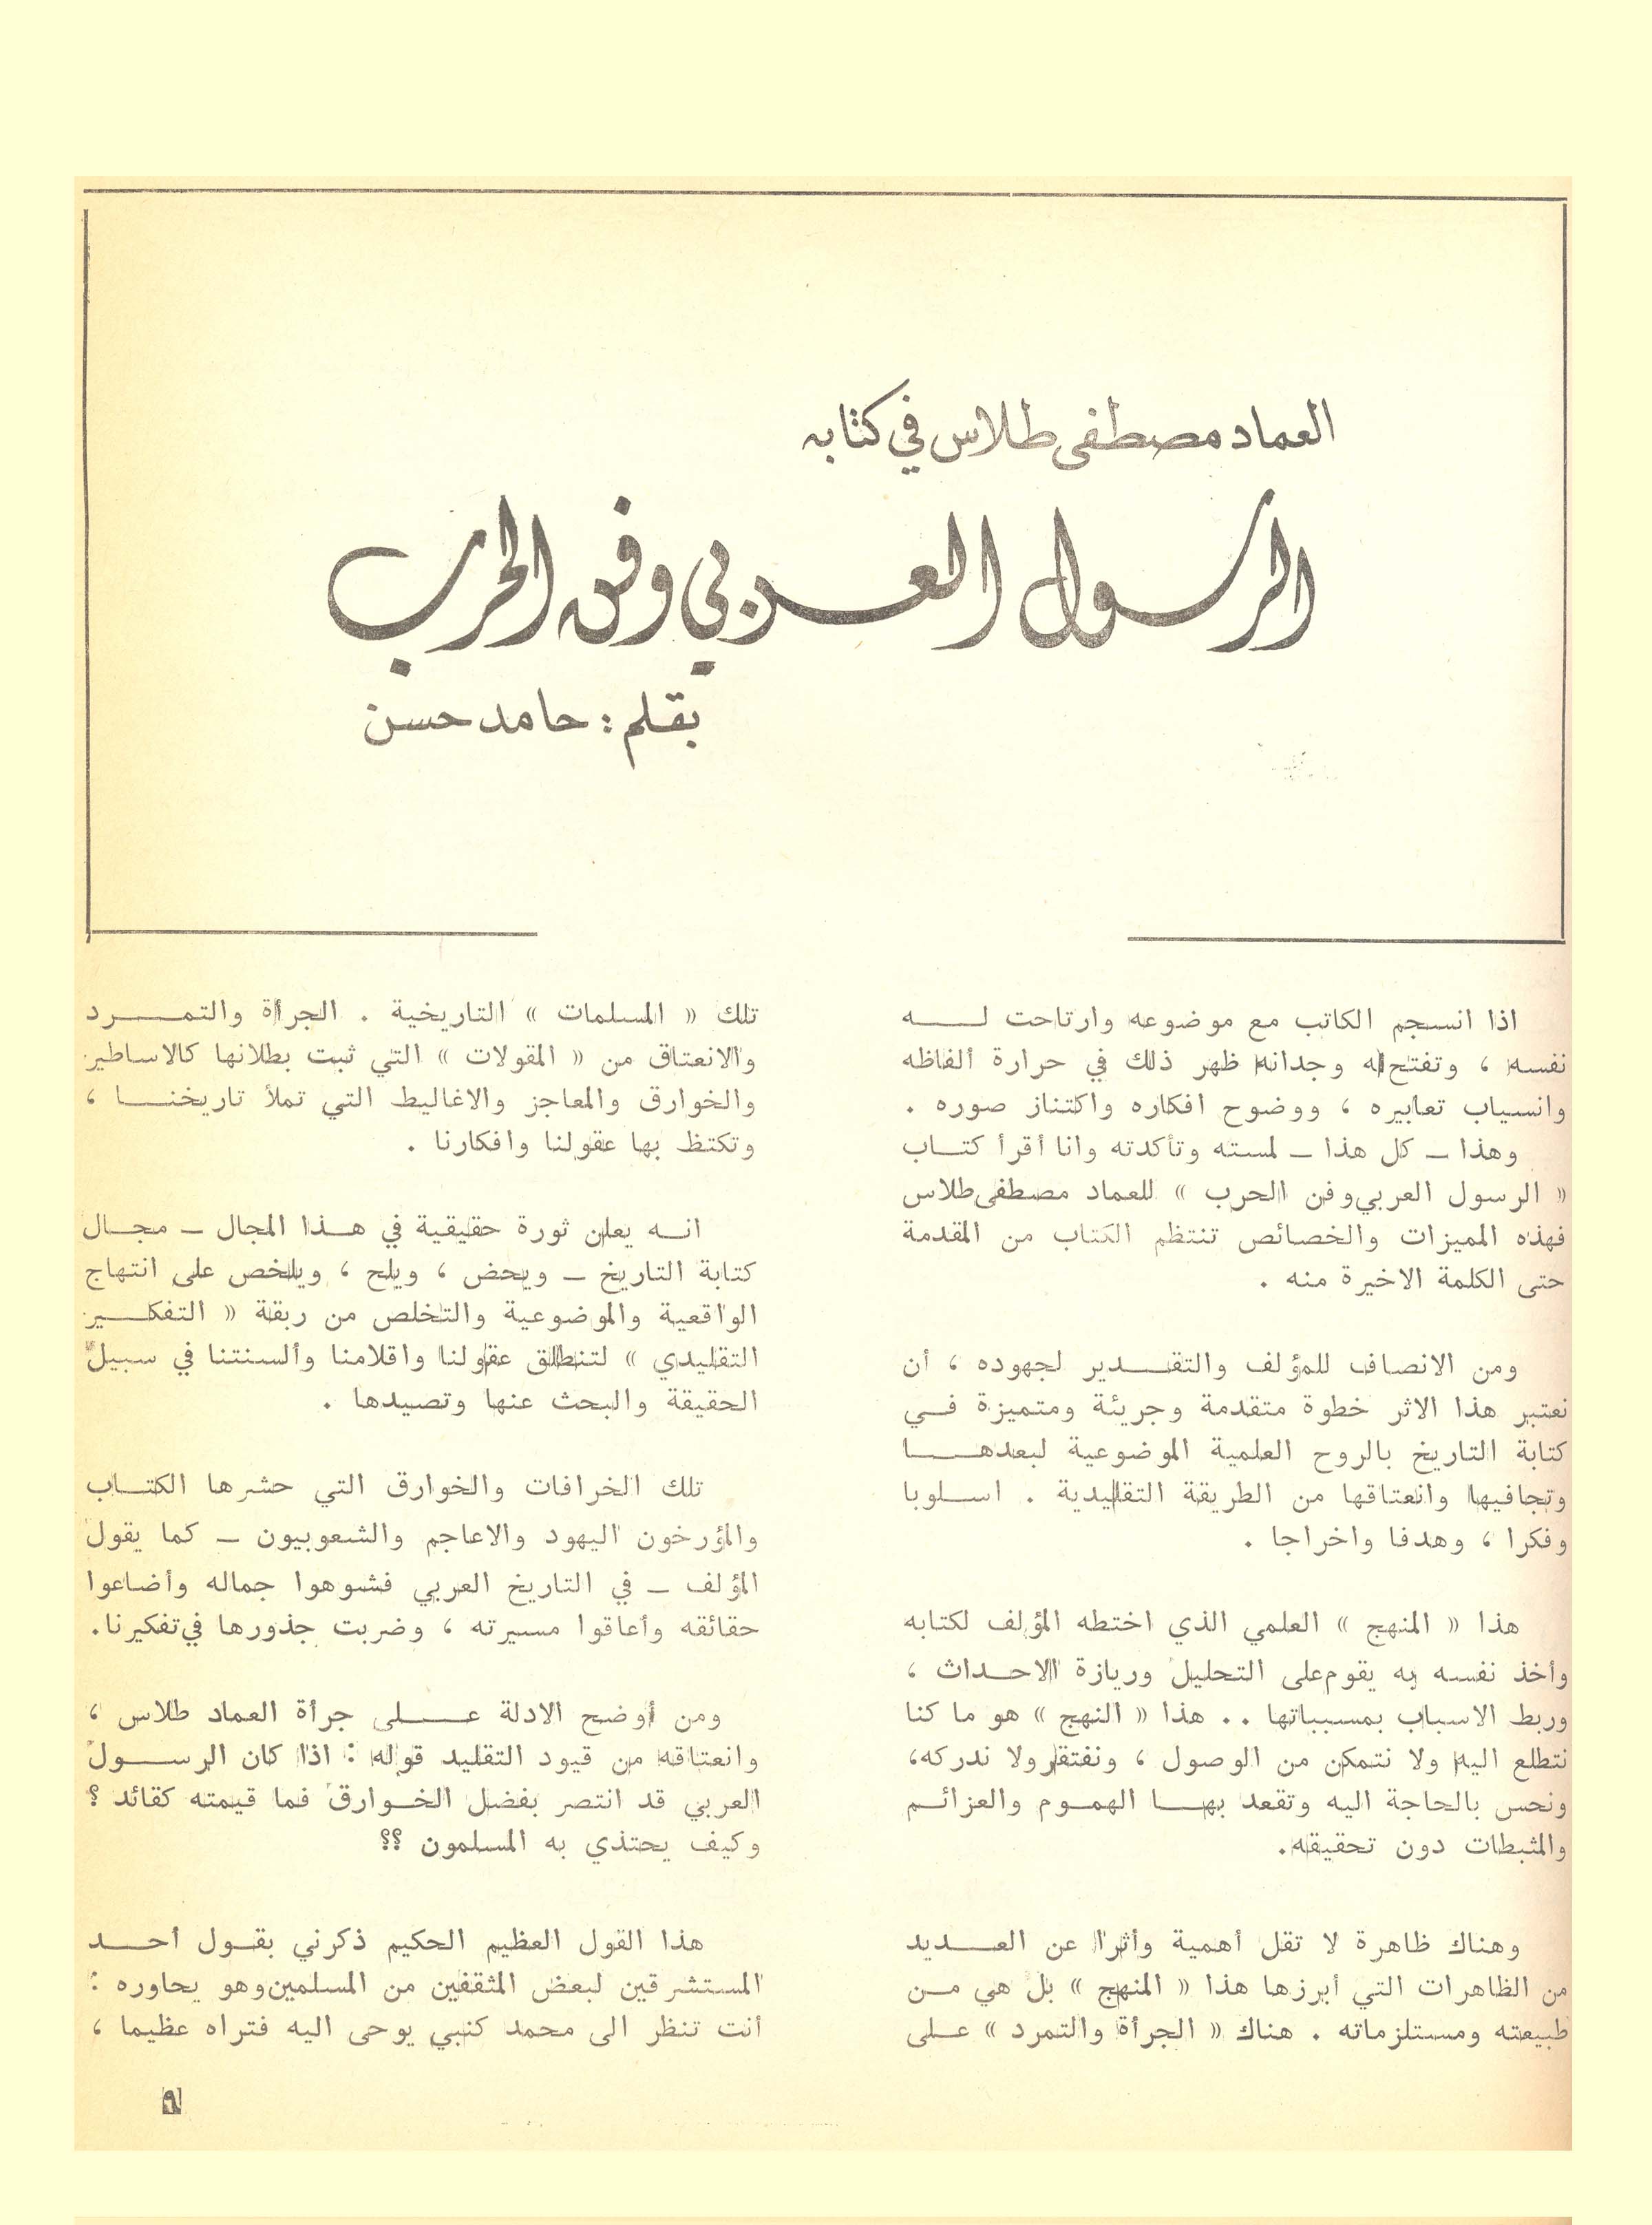 العماد مصطفى طلاس في كتابه
الرسول العربي وفن الحرب
بقلم : حامد حسن
اذا انسجم الكاتب مع موضوعه وارتاحت لـــه
نفسه ، وتفتح له وجدانه ظهر ذلك في حرارة ألفاظه
وانسياب تعابيره ، ووضوح افكاره واكتناز صوره .
وهذا ــ كل هذا ــ لمسته وتأكدته وانا أقرأ كتــاب
« الرسول العربي وفن الحرب » للعماد مصطفى طلاس
فهذه المميزات والخصائص تنتظم الكتاب من المقدمة
حتى الكلمة الاخيرة منه .
ومن الانصاف للمؤلف والتقــدير لجهوده ، أن
نعتبر هذا الاثر خطوة متقدمة وجريئة ومتميزة فــي
كتابة التاريخ بالروح العلمية الموضوعية لبعدهــا
وتجافيها وانعتاقها من الطريقة التقليدية . اسـلوبا
وفكرا ، وهدفا واخراجا .
هذا « المنهج » العلمي الذي اختطه المؤلف لكتابه
وأخذ نفسه به يقوم على التحليل وريازة الاحـداث ،
وربط الاسباب بمسبباتها . . هذا « النهج » هو ما كنا
نتطلع اليه ولا نتمكن من الوصول ، ونفتقر ولا ندركه،
ونحس بالحاجة اليه وتقعد بهــا الهمـوم والعزائــم
والمثبطات دون تحقيقه.
وهناك ظاهرة لا تقل أهمية وأثرا عن العــديد
من الظاهرات التي أبرزها هذا « المنهج » بل هي مــن
طبيعته ومستلزماته . هناك « الجرأة والتمرد » علـى
تلك « المسلمات » التاريخية . الجرأة والتمــــرد
والانعتاق من « المقولات » التي ثبت بطلانها كالاساطير
والخوارق والمعاجز والاغاليط التي تملأ تاريخنــا ،
وتكتظ بها عقولنا وافكارنا .
انــه يعلن ثورة حقيقية في هـذا المجال ــ مجـال
كتابة التاريخ ــ ويحض ، ويلح ، ويلخص على انتهاج
الواقعية والموضوعية والتخلص من ربقة « التفكــير
التقليدي » لتنطلق عقولنا واقلامنا وألسنتنا في سبيل
الحقيقة والبحث عنها وتصيدها .
تلك الخرافات والخوارق التي حشرها الكتــاب
والمؤرخون اليهود والاعاجم والشعوبيون ــ كما يقول
المؤلف ــ في التاريخ العربي فشوهوا جماله وأضاعوا
حقائقه وأعاقوا مسيرته ، وضربت جذورها في تفكيرنا.
ومن أوضح الادلة عــــلى جرأة العماد طلاس ،
وانعتاقه من قيود التقليد قوله : اذا كان الرســـول
العربي قد انتصر بفضل الخـوارق فما قيمته كقائد ؟
وكيف يحتذي به المسلمون ؟؟
هذا القول العظيم الحكيم ذكرني بقــول أحــد
المستشرقين لبعض المثقفين من المسلمين وهو يحاوره :
أنت تنظر الى محمد كنبي يوحى اليه فتراه عظيما ،
٩